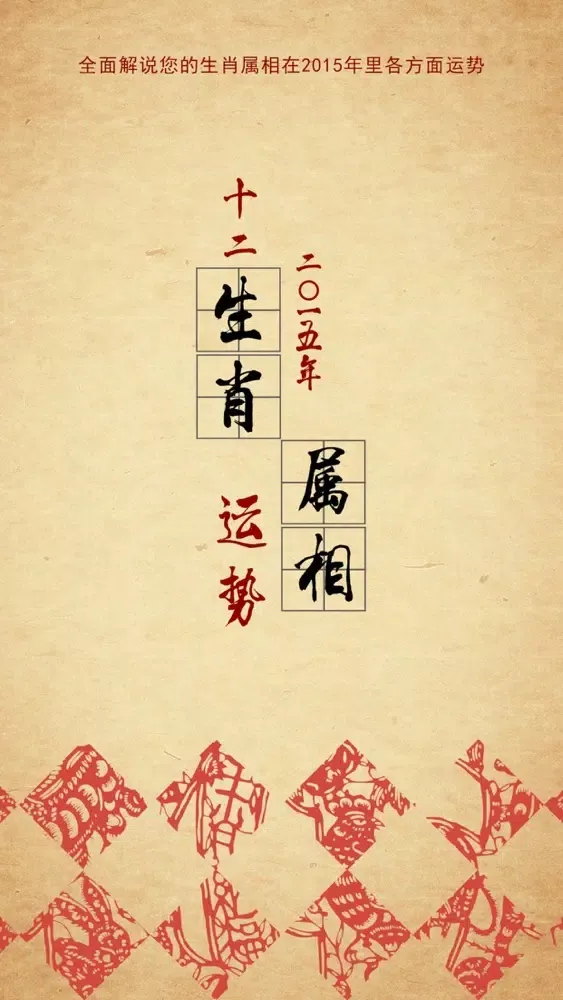 全面解说您的生肖属相在2015年里各方面运势
十二生肖运势
二〇一五年属相